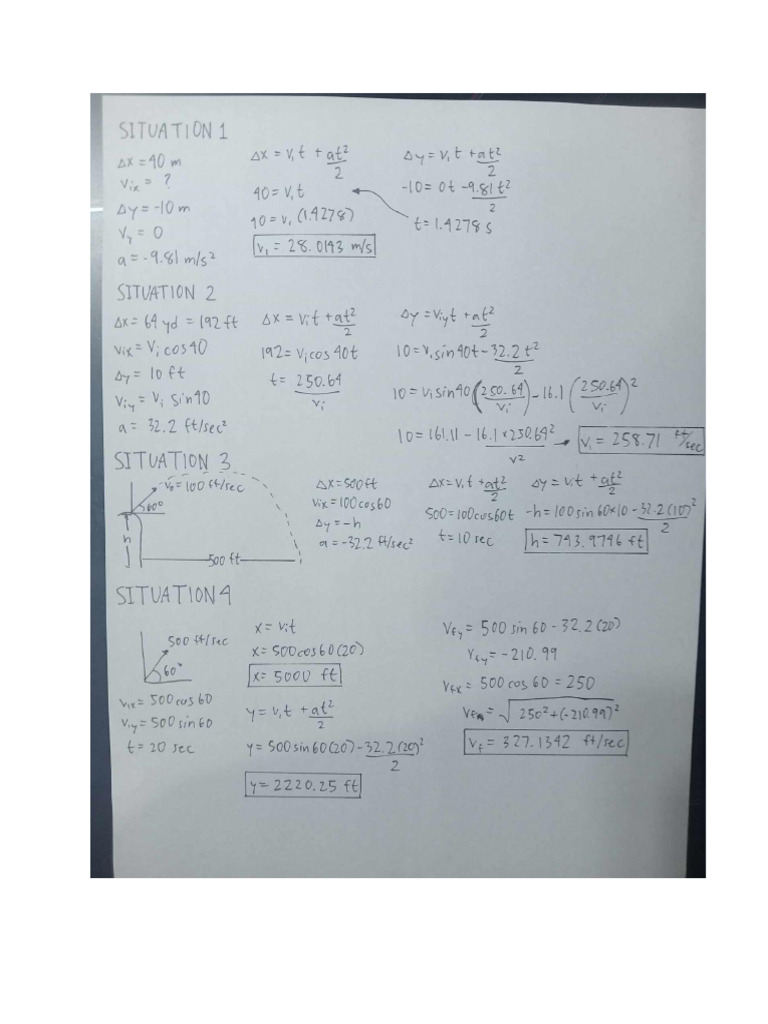 SITUATION 1
Δx = 40 m
Vix = ?
Δy = -10 m
Vy = 0
a = -9.81 m/s²
Δx = v₁t + at²/2
40 = v₁t
40 = v₁ (1.4278)
v₁ = 28.0143 m/s
Δy = v₁t + at²/2
-10 = 0t - 9.81t²/2
t = 1.4278 s
SITUATION 2
Δx = 64 yd = 192 ft
Vix = Vi cos40
Δy = 10 ft
Viy = Vi sin40
a = 32.2 ft/sec²
Δx = Vit + at²/2
192 = Vi cos 40t
t = 250.64/Vi
Δy = Viyt + at²/2
10 = Vi sin 40t - 32.2t²/2
10 = Vi sin40 (250.64/Vi) - 16.1 (250.64/Vi)²
10 = 161.11 - 16.1 × 250.64²/v²
Vi = 258.71 ft/sec
SITUATION 3
= 100 ft/sec
60°
h
500 ft
Δx = 500ft
Vix = 100cos60
Δy = -h
a = -32.2 ft/sec²
Δx = Vit + at²/2
500 = 100cos60t
t = 10 sec
Δy = Vit + at²/2
-h = 100 sin 60×10 - 32.2(10)²/2
h = 743.9746 ft
SITUATION 4
500 ft/sec
60°
Vix = 500 cos 60
Viy = 500 sin 60
t = 20 sec
x = Vit
x = 500 cos 60 (20)
x = 5000 ft
y = v₁t + at²/2
y = 500 sin 60 (20) - 32.2 (20)²/2
y = 2220.25 ft
Vfy = 500 sin 60 - 32.2 (20)
Vfy = -210.99
Vfx = 500 cos 60 = 250
= √250² + (-210.99)²
Vf = 327.1342 ft/sec